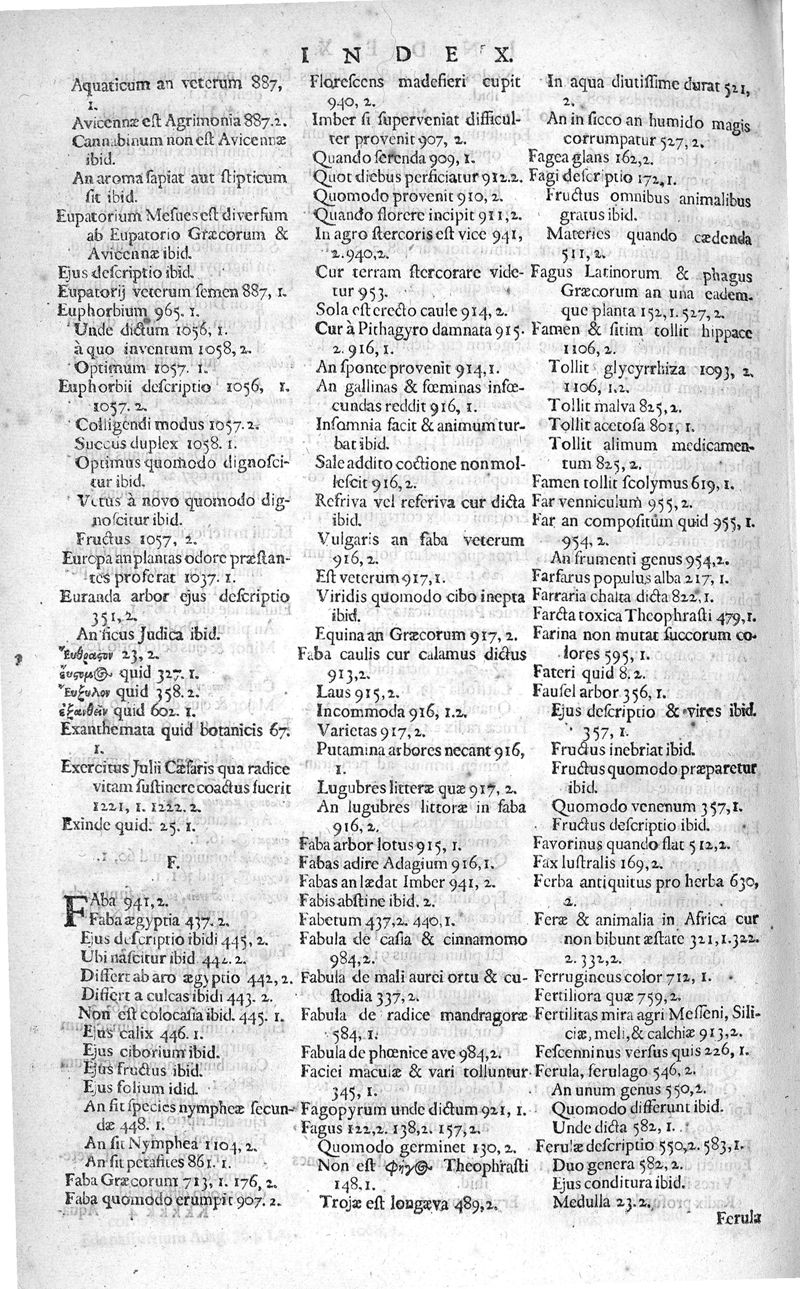 INDEX.
Aquaticum an veterum 887,
1.
Avicennæ est Agrimonia 887.2.
Cannabinum non est Avicennæ
ibid.
An aroma sapiat aut stipticum
sit ibid.
Eupatorium Mesues est diversum
ab Eupatorio Græcorum &
Avicennæ ibid.
Ejus descriptio ibid.
Eupatorij veterum semen 887, 1.
Euphorbium 965. 1.
Unde dictum 1056, 1.
à quo inventum 1058, 2.
Optimum 1057. 1.
Euphorbii descriptio 1056, 1.
1057. 2.
Colligendi modus 1057. 2.
Succus duplex 1058. 1.
Optimus quomodo dignosci-
tur ibid.
Vetus à novo quomodo dig-
noscitur ibid.
Fructus 1057, 2.
Europa an plantas odore præstan-
tes proferat 1037. 1.
Euranda arbor ejus descriptio
351, 2.
An ficus Judica ibid.
23, 2.
quid 327. 1.
Ἔυξυλον quid 358. 2.
ἐξανθεῖν quid 602. 1.
Exanthemata quid botanicis 67.
1.
Exercitus Julii Cæsaris qua radice
vitam sustinere coactus fuerit
1221, 1. 1222. 2.
Exinde quid. 25. 1.
F.
FAba 941, 2.
Faba ægyptia 437. 2.
Ejus descriptio ibidi 445, 2.
Ubi nascitur ibid 442. 2.
Differt ab aro ægyptio 442, 2.
Differt a culcas ibidi 443. 2.
Non est colocasia ibid. 445. 1.
Ejus calix 446. 1.
Ejus ciborium ibid.
Ejus fructus ibid.
Ejus folium idid.
An sit species nympheæ secun-
dæ 448. 1.
An sit Nymphea 1104, 2.
An sit petasites 861. 1.
Faba Græcorum 713, 1. 176, 2.
Faba quomodo erumpit 907. 2.
Florescens madefieri cupit
940, 2.
Imber si superveniat difficul-
ter provenit 907, 2.
Quando serenda 909, 1.
Quot diebus perficiatur 912. 2.
Quomodo provenit 910, 2.
Quando florere incipit 911, 2.
In agro stercoris est vice 941,
2. 940, 2.
Cur terram stercorare vide-
tur 953.
Sola est erecto caule 914, 2.
Cur à Pithagyro damnata 915.
2. 916, 1.
An sponte provenit 914, 1.
An gallinas & fœminas infœ-
cundas reddit 916, 1.
Insomnia facit & animum tur-
bat ibid.
Sale addito coctione non mol-
lescit 916, 2.
Refriva vel referiva cur dicta
ibid.
Vulgaris an faba veterum
916, 2.
Est veterum 917, 1.
Viridis quomodo cibo inepta
ibid.
Equina an Græcorum 917, 2.
Faba caulis cur calamus dictus
913, 2.
Laus 915, 2.
Incommoda 916, 1.2.
Varietas 917, 2.
Putamina arbores necant 916,
1.
Lugubres litteræ quæ 917, 2.
An lugubres littoræ in faba
916, 2.
Faba arbor lotus 915, 1.
Fabas adire Adagium 916, 1.
Fabas an lædat Imber 941, 2.
Fabis abstine ibid. 2.
Fabetum 437, 2. 440, 1.
Fabula de casia & cinnamomo
984, 2.
Fabula de mali aurei ortu & cu-
stodia 337, 2.
Fabula de radice mandragoræ
584, 1.
Fabula de phœnice ave 984, 2.
Faciei maculæ & vari tolluntur
345, 1.
Fagopyrum unde dictum 921, 1.
Fagus 122, 2. 138, 2. 157, 2.
Quomodo germinet 130, 2.
Non est Theophrasti
148. 1.
Trojæ est longæva 489, 2.
In aqua diutissime durat 521,
2.
An in sicco an humido magis
corrumpatur 527, 2.
Fagea glans 162, 2.
Fagi descriptio 172, 1.
Fructus omnibus animalibus
gratus ibid.
Materies quando cædenda
511, 2.
Fagus Latinorum & phagus
Græcorum an una eadem-
que planta 152, 1. 527, 2.
Famen & sitim tollit hippace
1106, 2.
Tollit glycyrrhiza 1093, 2.
1106, 1.2.
Tollit malva 825, 2.
Tollit acetosa 801, 1.
Tollit alimum medicamen-
tum 825, 2.
Famen tollit scolymus 619, 1.
Far venniculum 955, 2.
Far an compositum quid 955, 1.
954, 2.
An frumenti genus 954, 2.
Farfarus populus alba 217, 1.
Farraria chalta dicta 822, 1.
Farcta toxica Theophrasti 479, 1.
Farina non mutat succorum co-
lores 595, 1.
Fateri quid 8. 2.
Faufel arbor 356, 1.
Ejus descriptio & vires ibid.
357, 1.
Fructus inebriat ibid.
Fructus quomodo præparetur
ibid.
Quomodo venenum 357, 1.
Fructus descriptio ibid.
Favorinus quando flat 512, 2.
Fax lustralis 169, 2.
Ferba antiquitus pro herba 630,
2.
Feræ & animalia in Africa cur
non bibunt æstate 321, 1. 322.
2. 332, 2.
Ferrugineus color 712, 1.
Fertiliora quæ 759, 2.
Fertilitas mira agri Messeni, Sili-
ciæ, meli, & calchiæ 913, 2.
Fescenninus versus quis 226, 1.
Ferula, ferulago 546, 2.
An unum genus 550, 2.
Quomodo differunt ibid.
Unde dicta 582, 1.
Ferulæ descriptio 550, 2. 583, 1.
Duo genera 582, 2.
Ejus conditura ibid.
Medulla 23. 2.
Ferula